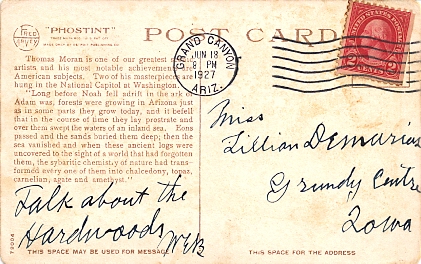 FRED HARVEY
"PHOSTINT"
POST CARD
GRAND CANYON
JUN 18
8 PM
1927
ARIZ.
UNITED STATES POSTAGE
2 CENTS 2
Thomas Moran is one of our greatest
artists and his most notable achievements
American subjects. Two of his masterpieces are
hung in the National Capitol at Washington.
"Long before Noah fell adrift in the ark of
Adam was, forests were growing in Arizona just
as in some parts they grow today, and it befell
that in the course of time they lay prostrate and
over them swept the waters of an inland sea. Eons
passed and the sands buried them deep; then the
sea vanished and when these ancient logs were
uncovered to the sight of a world that had forgotten
them, the sybaritic chemistry of nature had trans-
formed every one of them into chalcedony, topaz,
carnelian, agate and amethyst."
Talk about the
Hardwoods
WEB
Miss
Lillian DeMarias
Grundy Centre
Iowa
79004
THIS SPACE MAY BE USED FOR MESSAGE
THIS SPACE FOR THE ADDRESS